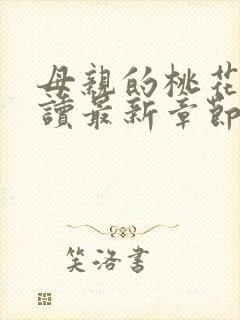 母親的桃花
讀最新章節
笑洛書